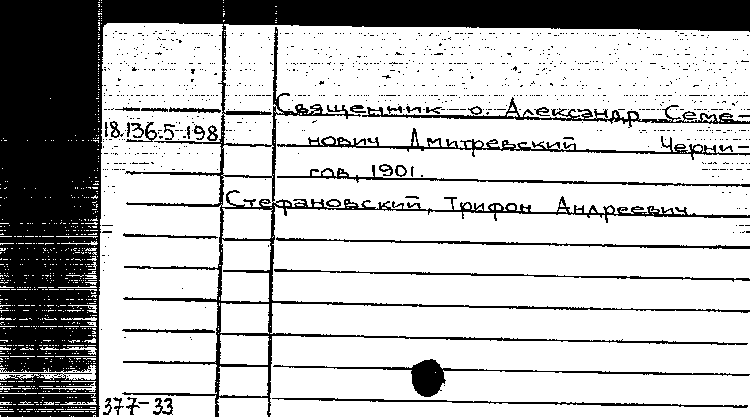 Священник о. Александр Семе-
18.136.5.198
нович Дмитревский. Черни-
гов, 1901.
Стефановский, Трифон Андреевич.
377-33